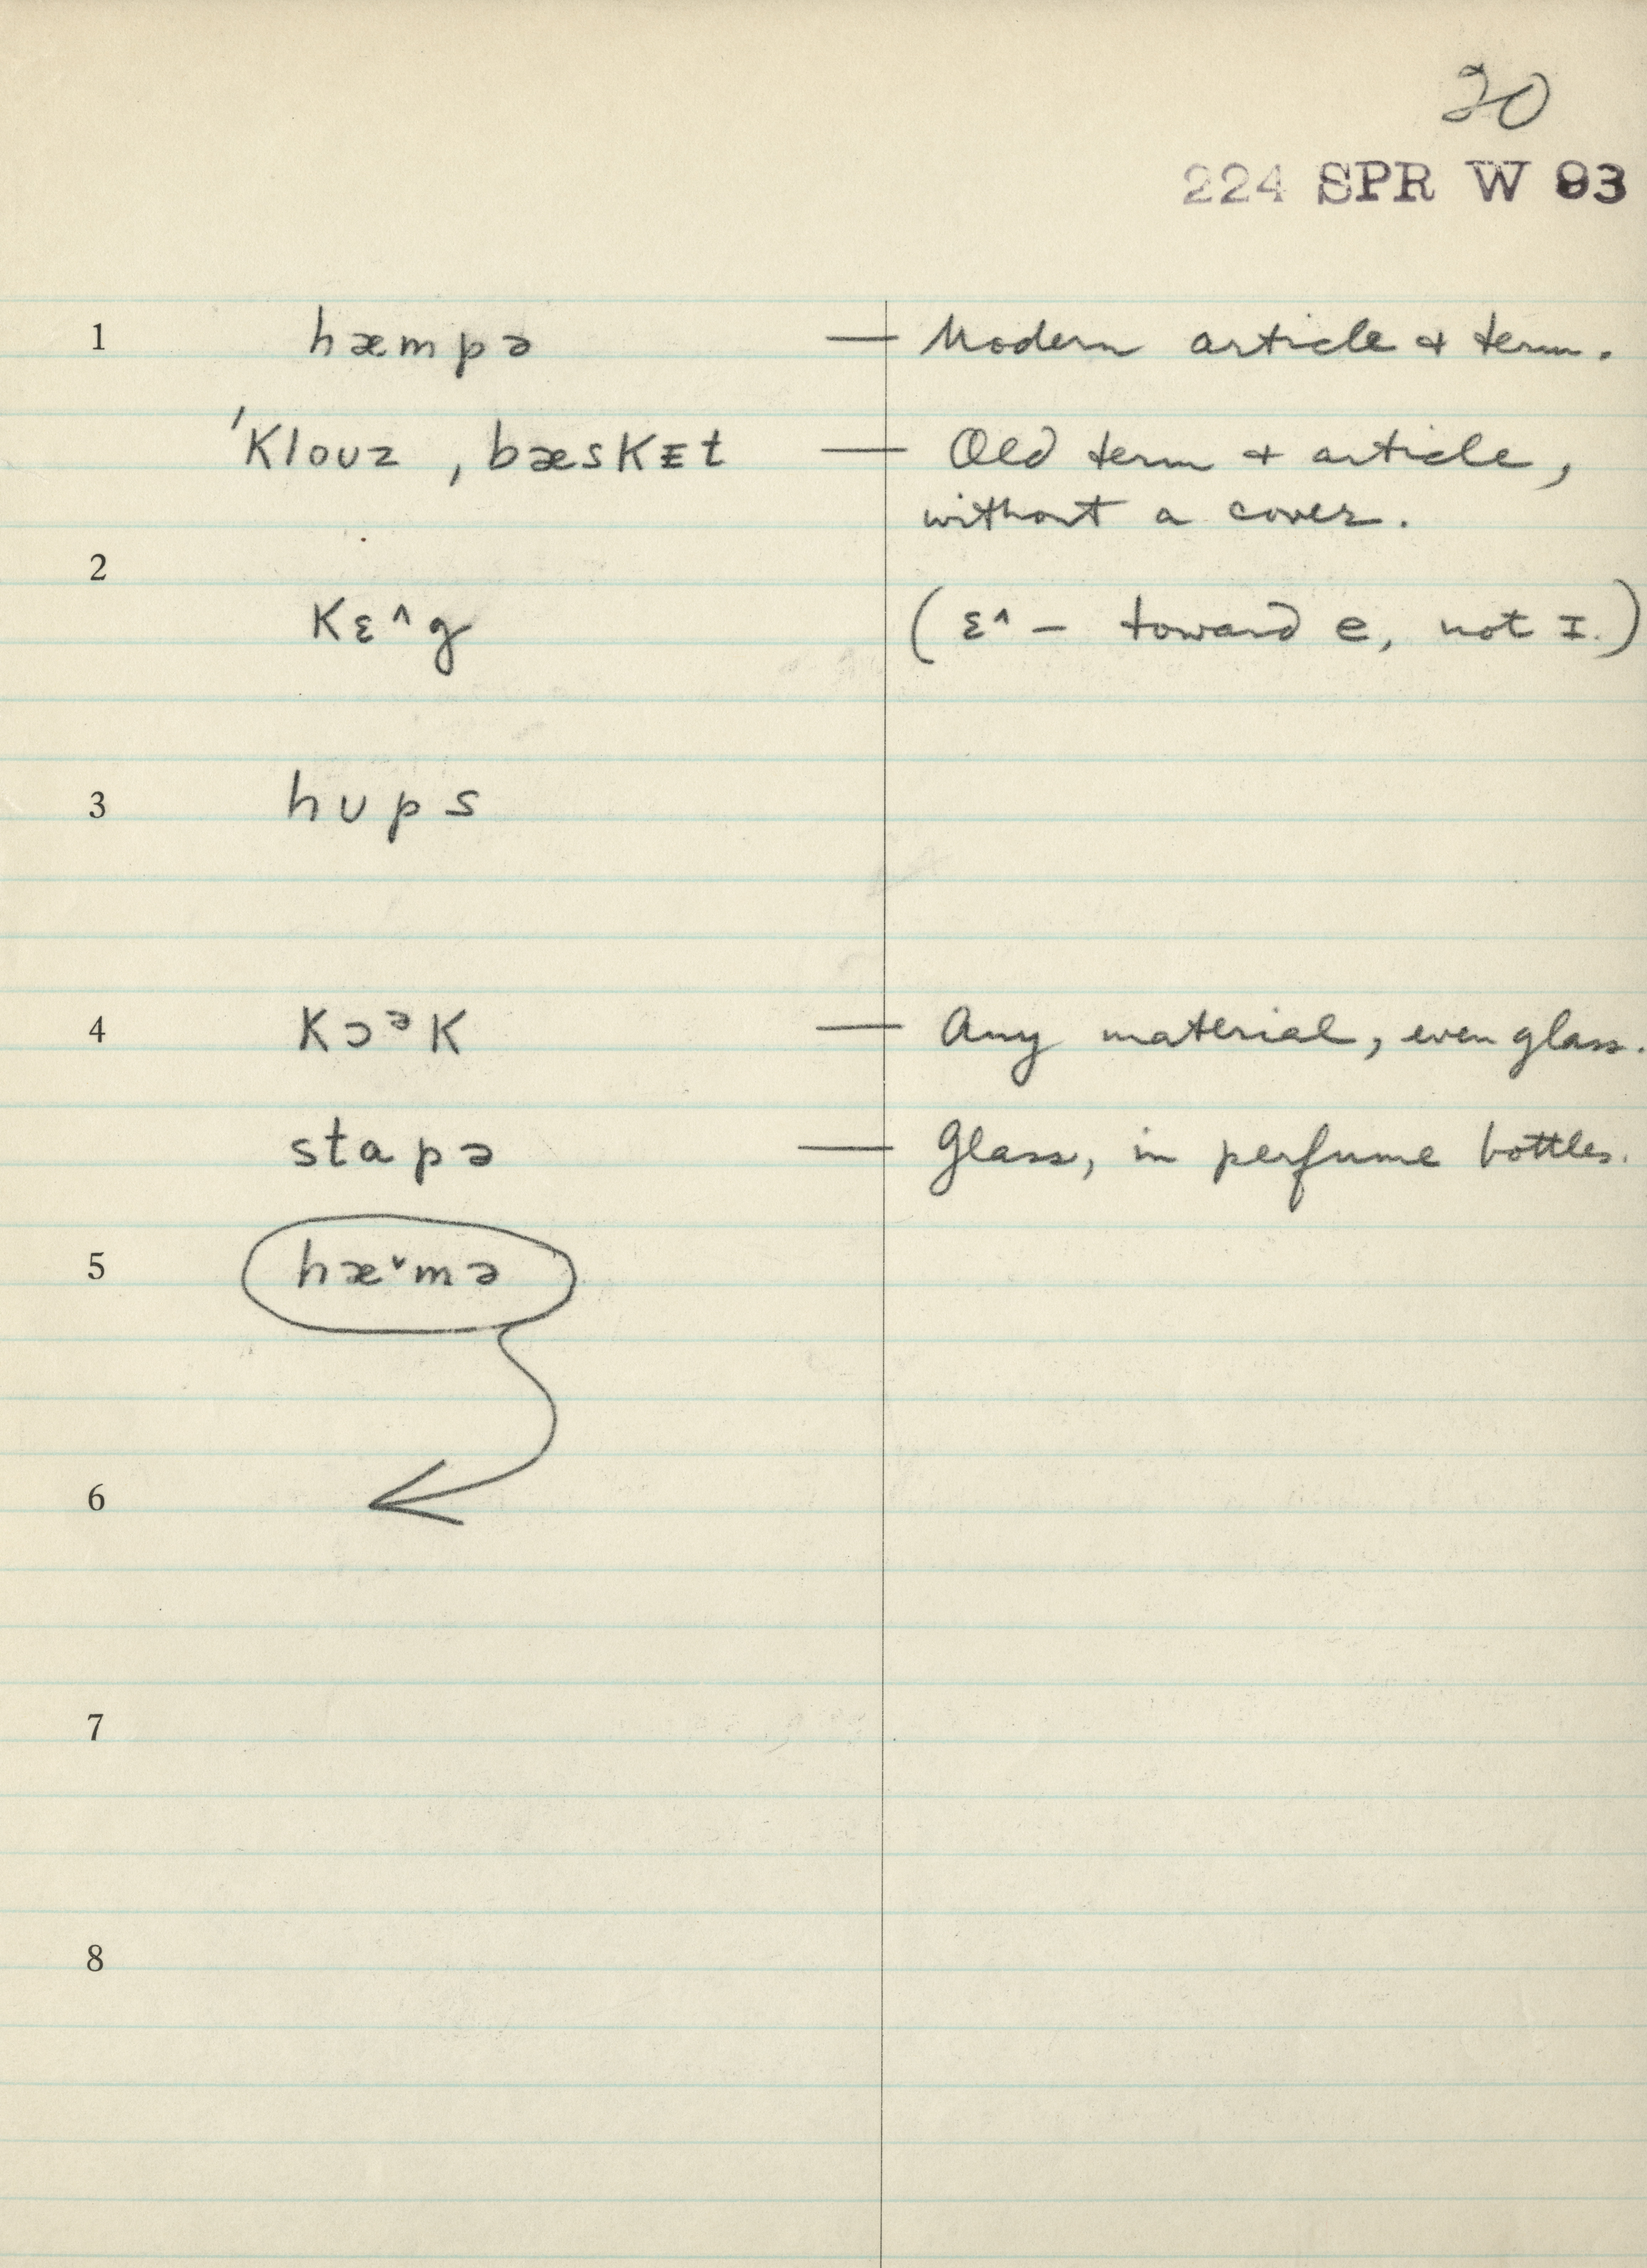 20
224 SPR W 93
1 hæmpə — Modern article + term.
ˈKloʊz ˌbæsKᵻt — Old term + article,
without a cover.
2
Kɛ^g (ɛ^ – toward e, not ɪ.)
3 hʊps
4 KɔᵊK — Any material, even glass.
stapə — Glass, in perfume bottles.
5 hæˇmə
6
7
8